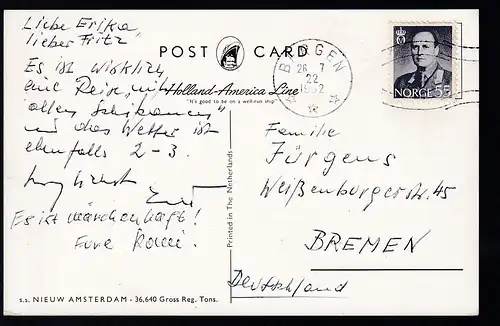 Liebe Erika,
lieber Fritz"
Es ist wirklich
eine Reise „mit
allen Schikanen"
und das Wetter ist
ebenfalls 2-3.
Es ist märchenhaft!
Eure
POST CARD
Holland-America Line
"It's good to be on a well-run ship"
BERGEN
26 7
22
1962
NORGE 55
Printed in The Netherlands
Familie
Jürgens
Weißenburgerstr. 45
BREMEN
Deutschland
s.s. NIEUW AMSTERDAM - 36,640 Gross Reg. Tons.